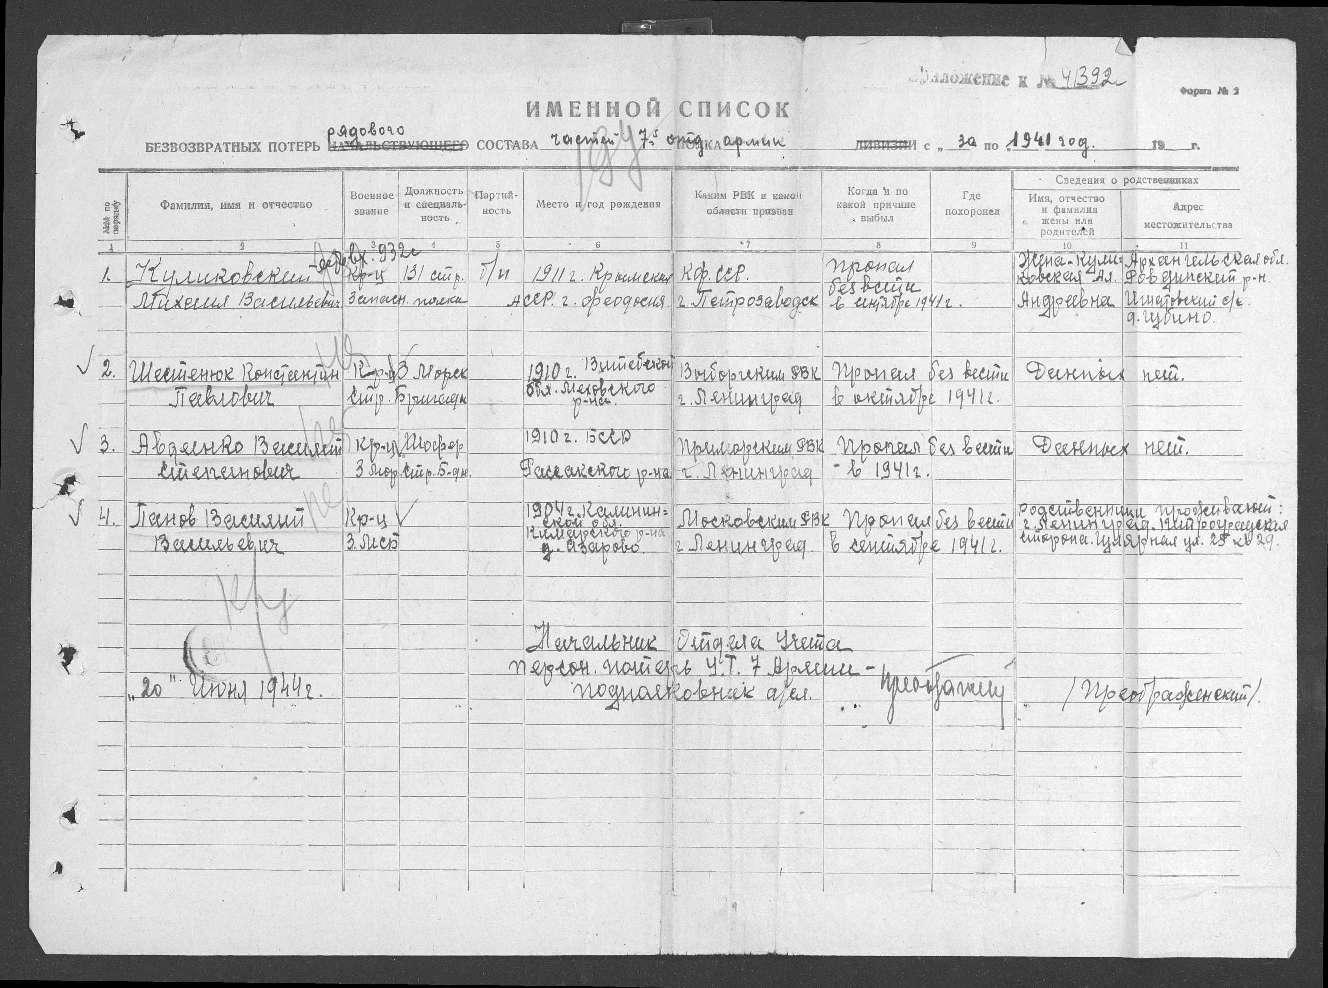 Приложение к № 41392с
Форма № 2
ИМЕННОЙ СПИСОК
рядового
БЕЗВОЗВРАТНЫХ ПОТЕРЬ НАЧАЛЬСТВУЮЩЕГО СОСТАВА частей 7й отд. ПОЛКА армии ДИВИЗИИ с „ за по „ 1941 год. 19 г.
№№ по порядку
Фамилия, имя и отчество
Военное звание
Должность и специальность
Партийность
Место и год рождения
Каким РВК и какой области призван
Когда и по какой причине выбыл
Где похоронен
Сведения о родственниках
Имя, отчество и фамилия жены или родителей
Адрес местожительства
1 2 3 4 5 6 7 8 9 10 11
1. Куликовский Кр-ц 131 стр. б/п 1911 г. Крымская Кф.ССР. Пропал без вести Жена-Кули- Архангельская обл.
ковская Ал. Ровдинский р-н.
Михаил Васильевич Запасн. полка АССР. г. Феодосия г. Петрозаводск в сентябре 1941 г. Андреевна Игнатовский с/с
д. Губино.
2. Шестенюк Константин Кр-ц 3 Морск 1910 г. Витебской Выборгским РВК Пропал без вести Данных нет.
Павлович Стр. Бригады обл. Меховского р-на. г. Ленинград в октябре 1941 г.
3. Авдеенко Василий Кр-ц Шофер 1910 г. БССР Приморским РВК Пропал без вести Данных нет.
Степанович 3 Мор. Стр. Б-ды. р-на г. Ленинград - в 1941 г.
4. Панов Василий Кр-ц 1904 г. Калинин= Московским РВК Пропал без вести родственники проживают:
ской обл. г. Ленинград. Петроградская
Васильевич 3. МСБ Кимрского р-на г. Ленинград. в сентябре 1941 г. сторона. ул. 25 кв 29.
д. Азарово.
Начальник Отдела Учета
персон. потерь У.Т. 7 Армии -
„20" Июня 1944 г. подполковник а/сл. /Преображенский/.